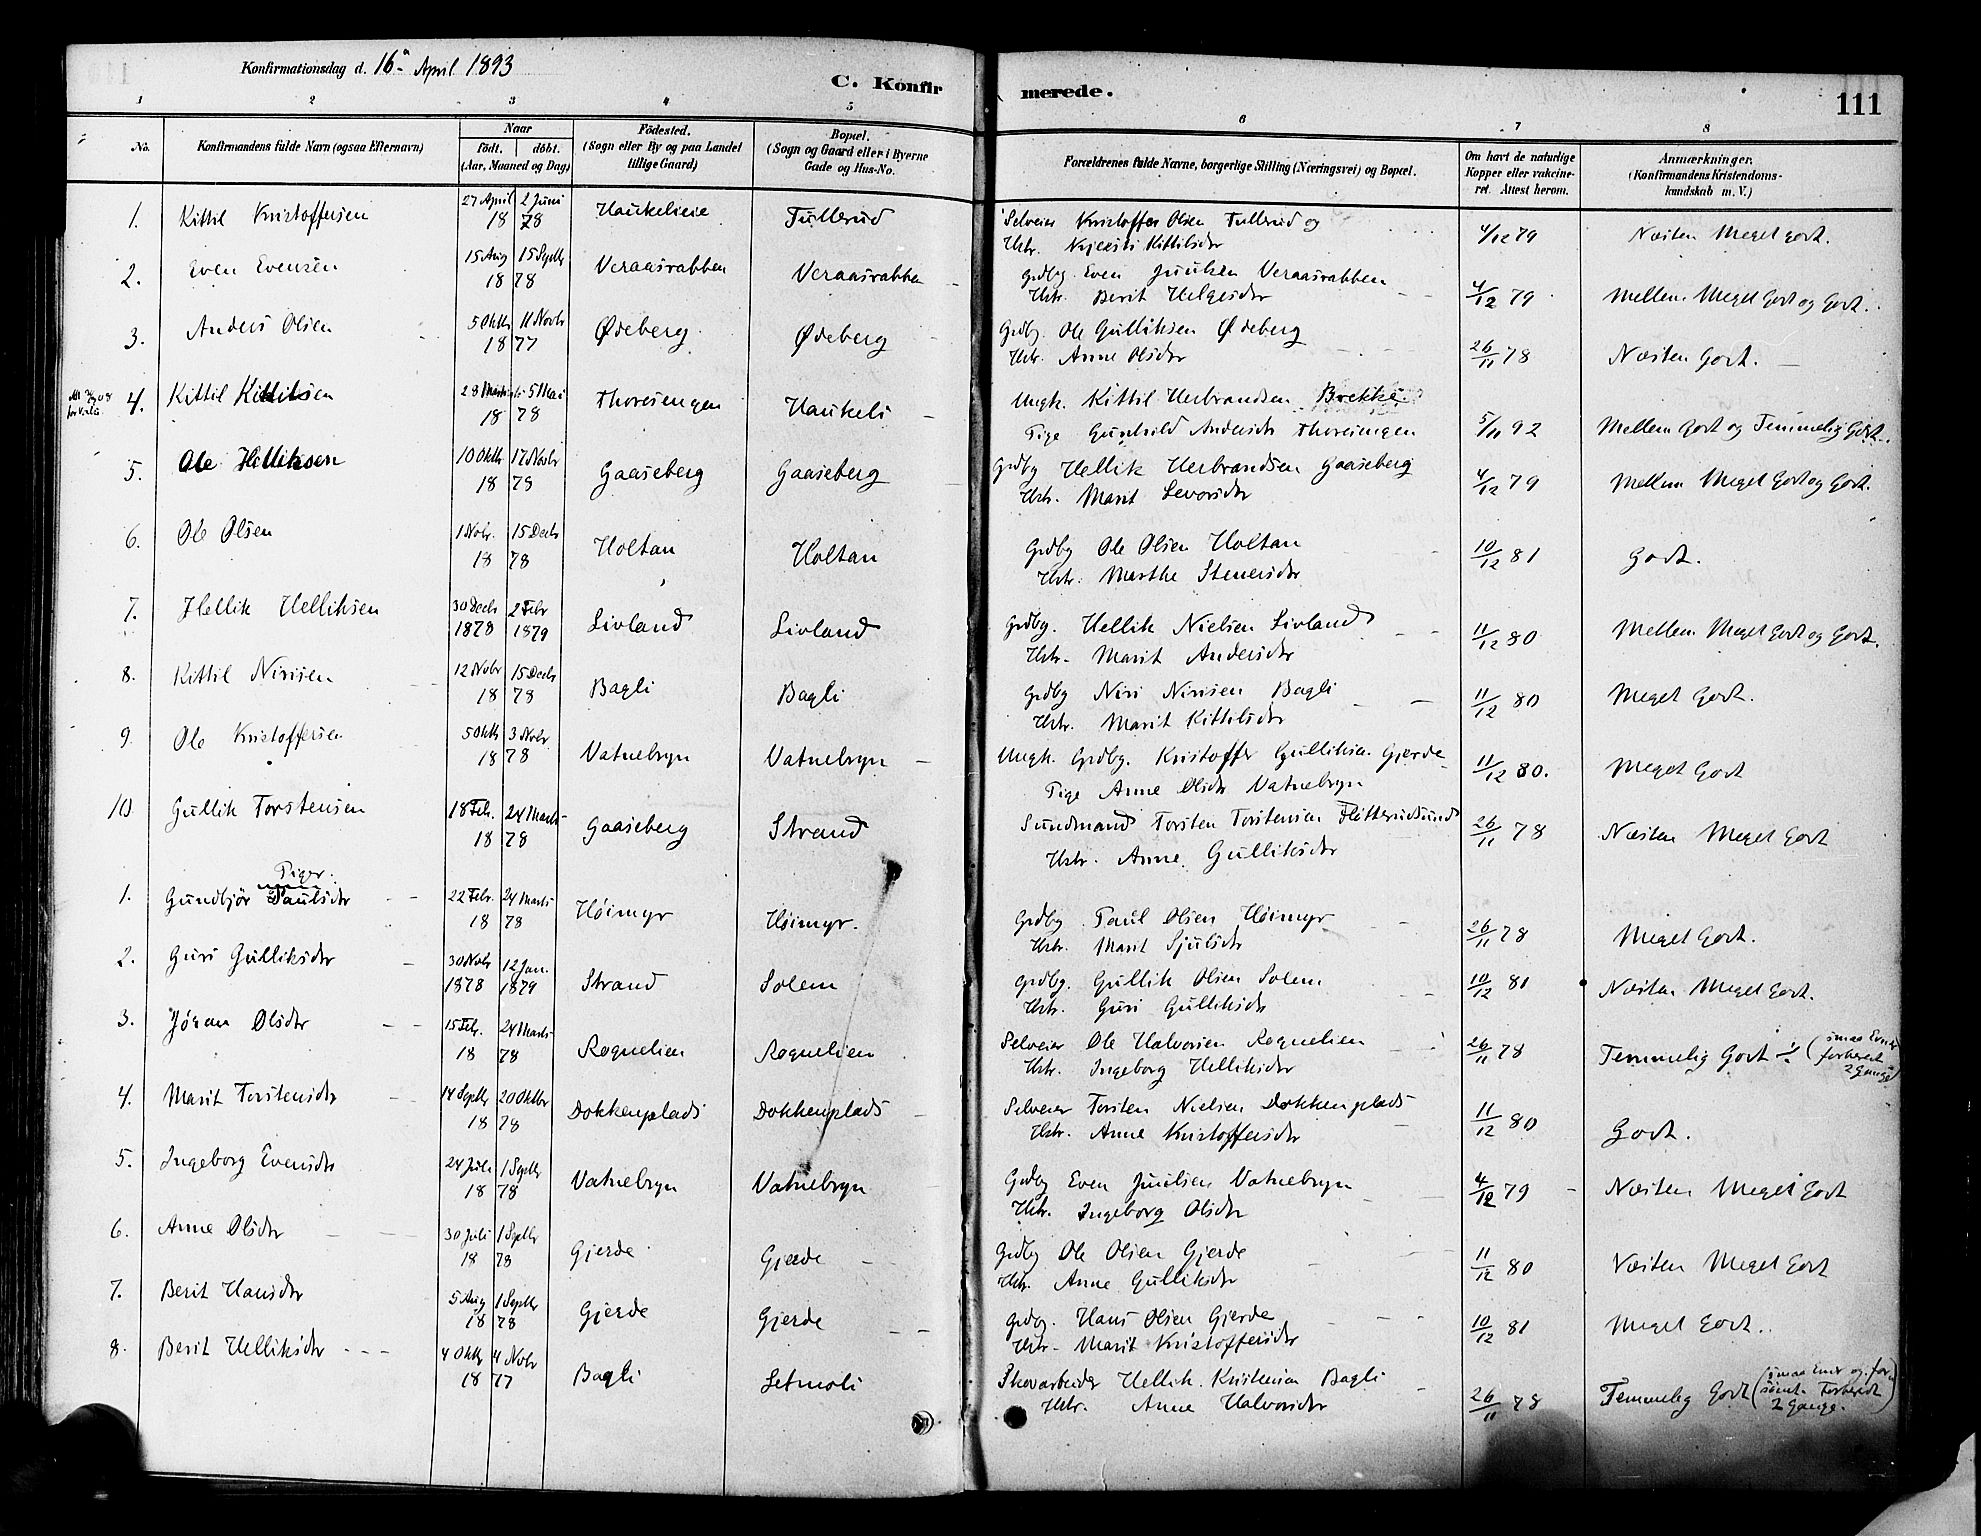 Konfirmationsdag d. 16de April 1893
C. Konfir
merede.
111
1 2 3 4 5 6 7 8
No.
Konfirmandens fulde Navn (ogsaa Efternavn)
Naar
födt. döbt.
(Aar, Maaned og Dag)
Födested.
(Sogn eller By og paa Landet
tillige Gaard)
Bopæl.
(Sogn og Gaard eller i Byerne
Gade og Hus-No.
Forældrenes fulde Navne, borgerlige Stilling (Næringsvei) og Bopæl.
Om havt de naturlige
Kopper eller vakcine-
ret. Attest herom.
Anmærkninger.
(Konfirmandens Kristendoms-
kundskab m. V.)
1. Kittil Kristoffersen 27 April 2 Juni 18 78 Haukelieie Tullerud Selveier Kristoffer Olsen Tullerud og
Hstr. Kittilsdtr 4/12 79 Næsten Meget godt.
2. Even Evensen 15 Aug 15 Septbr 18 78 Veraasrabben Veraasrabben Grdbg. Even Juulsen Veraasrabben
Hstr. Berit Helgesdtr 4/12 79 Mellem Meget Godt og Godt.
3. Anders Olsen 5 Oktbr 11 Novbr 18 77 Ødeberg Ødeberg Grdbg. Ole Gulliksen Ødeberg
Hstr. Anne Olsdtr 26/11 78 Næsten Godt.
4. Kittil Kittilsen 28 Marts 5 Mai 18 78 Thoresengen Haukeli Ungk. Kittil Herbrandsen Brekke
Pige Gunhild Andersdtr Thoresengen 5/11 92 Mellem Godt og Temmelig Godt.
5. Ole Helliksen 10 Oktbr 17 Novbr 18 78 Gaaseberg Gaaseberg Grdbg Hellik Herbrandsen Gaaseberg
Hstr. Marit Levorsdtr 4/12 79 Mellem Meget Godt og Godt.
6. Ole Olsen 1 Novbr. 15 Decbr 18 78 Holtan Holtan Grdbg Ole Olsen Holtan
Hstr. Marthe Stenersdtr 10/12 81 Godt.
7. Hellik Helliksen 30 Decbr 1878 2 Febr 1879 Livland Livland Grdbg. Hellik Nielsen Livland
Hstr. Marit Andersdtr 11/12 80 Mellem Meget Godt og Godt.
8. Kittil Nirisen 12 Novbr 15 Decbr 18 78 Bagli Bagli Grdbg Niri Nirisen Bagli
Hstr. Marit Kittilsdtr 11/12 80 Meget Godt.
9. Ole Kristoffersen 5 Oktbr 3 Novbr. 18 78 Vatnebryn Vatnebryn Ungk. Grdbg. Kristoffer Gulliksen Gjerde
Pige Anne Olsdtr Vatnebryn 11/12 80. Meget Godt
10 Gullik Torstensen 18 Feb. 24 Marts 18 78 Gaaseberg Strand Sundmand Torsten Torstensen Flitterudsund
Hstr. Anne Gulliksdtr 26/11 78 Næsten Meget Godt
Piger.
1. Gundbjør Paulsdtr 22 Febr. 24 Marts 18 78 Høimyr Høimyr. Grdbg Paul Olsen Høimyr
Hstr. Marit Sjulsdtr 26/11 78 Meget Godt.
2. Guri Gulliksdtr 30 Novbr 1878 12 Jan. 1879 Strand Solem Grdbg. Gullik Olsen Solem
Hstr. Guri Gulliksdtr 10/12 81 Næsten Meget Godt.
3. Jøran Olsdtr 15 Feb. 24 Marts 18 78 Roguelien Roguelien Selveier Ole Halvorsen Roguelien
Hstr. Ingeborg Helliksdtr 26/11 78 Temmelig Godt ÷ (smaa Evner
forberedt
2 Gange)
4. Marit Torstensdtr 14 Septbr 20 Oktbr 18 78 Dokkenplads Dokkenplads Selveier Torsten Nielsen Dokkenplads
Hstr. Anne Kristoffersdtr 11/12 80 Godt.
5. Ingeborg Evensdtr 24 Juli 1 Septbr 18 78 Vatnebryn Vatnebryn Grdbg Even Juulsen Vatnebryn
Hstr. Ingeborg Olsdtr 4/12 79 Næsten Meget Godt
6. Anne Olsdtr 30 Juli 1 Septbr 18 78 Gjerde Gjerde Grdbg Ole Olsen Gjerde
Hstr. Anne Gulliksdtr 11/12 80 Næsten Meget Godt
7. Berit Hansdtr 5 Aug 1 Septbr 18 78 Gjerde Gjerde Grdbg. Hans Olsen Gjerde
Hstr. Marit Kristoffersdtr 10/12 81 Meget Godt.
8. Berit Helliksdtr 4 Oktbr 4 Novbr 18 77 Bagli Setmoli Skovarbeider Hellik Kristensen Bagli
Hstr. Anne Halvorsdtr 26/11 78 Temmelig Godt (smaa Evner og for-
sømt. Forberedt
2 Gange.)